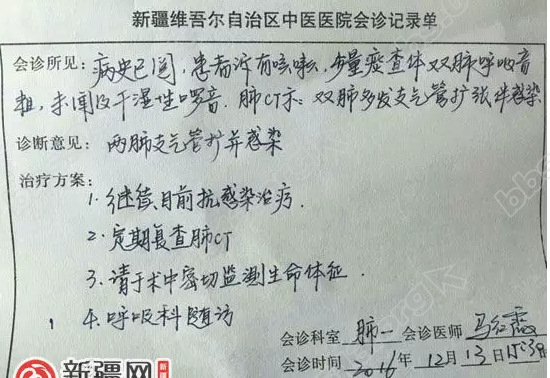 新疆维吾尔自治区中医医院会诊记录单
会诊所见：病史已阅，患者诉有咳嗽，少量痰查体双肺呼吸音
粗，未闻及干湿性啰音．肺CT示：双肺多发支气管扩张伴感染
诊断意见：两肺支气管扩并感染
治疗方案：
1. 继续目前抗感染治疗．
2. 定期复查肺CT
3. 请于术中密切监测生命体征．
4. 呼吸科随访
会诊科室 肺一 会诊医师 马红霞
会诊时间 2016年12月13日15:39
新疆网